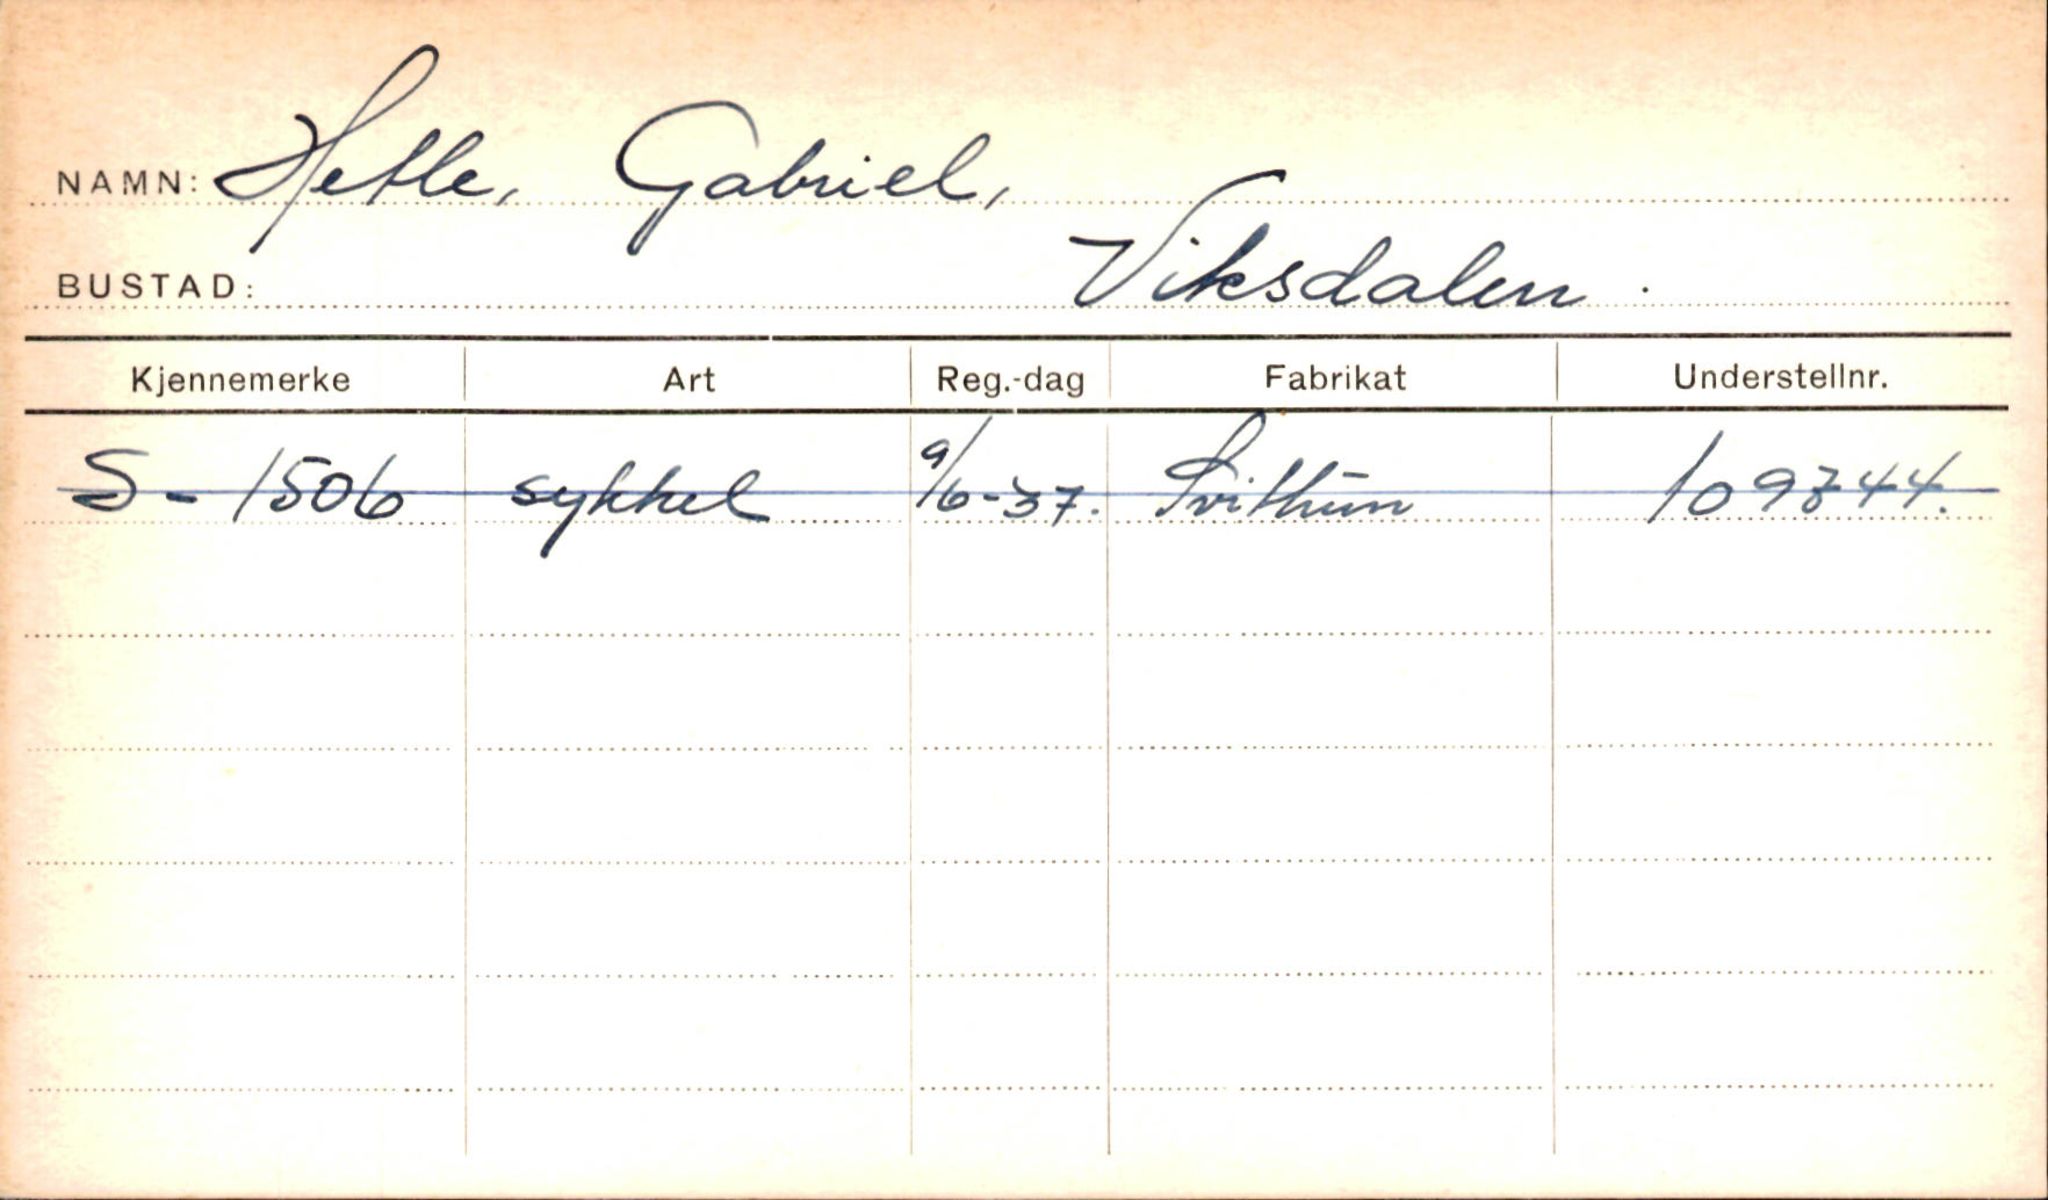 NAMN: Hetle, Gabriel,
BUSTAD: Viksdalen.
Kjennemerke Art Reg.-dag Fabrikat Understellnr.
S-1506 sykkel 9/6-37. Svithun 109744.